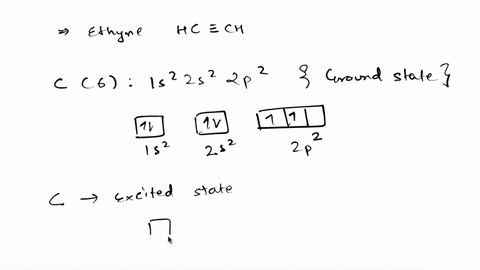 ⇒ Ethyne HC≡CH
C (6) : 1s² 2s² 2p² { Ground state }
1s² 2s² 2p²
C → excited state